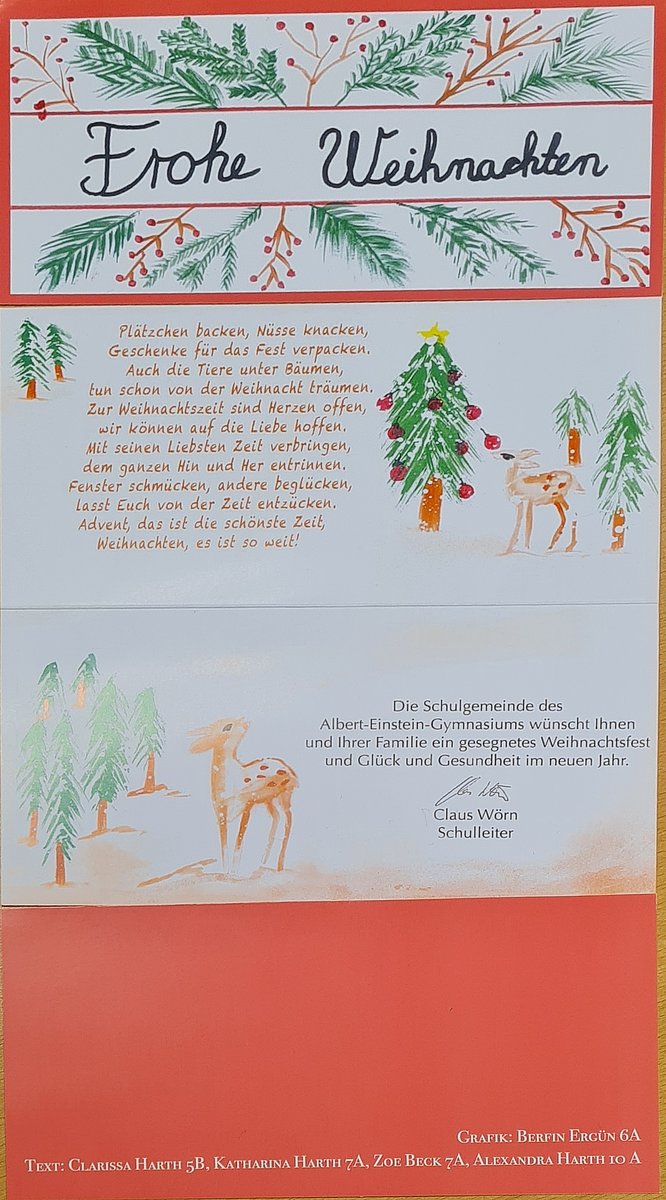 Frohe Weihnachten
Plätzchen backen, Nüsse knacken,
Geschenke für das Fest verpacken.
Auch die Tiere unter Bäumen,
tun schon von der Weihnacht träumen.
Zur Weihnachtszeit sind Herzen offen,
wir können auf die Liebe hoffen.
Mit seinen Liebsten Zeit verbringen,
dem ganzen Hin und Her entrinnen.
Fenster schmücken, andere beglücken,
lasst Euch von der Zeit entzücken.
Advent, das ist die schönste Zeit,
Weihnachten, es ist so weit!
Die Schulgemeinde des
Albert-Einstein-Gymnasiums wünscht Ihnen
und Ihrer Familie ein gesegnetes Weihnachtsfest
und Glück und Gesundheit im neuen Jahr.
Claus Wörn
Schulleiter
Grafik: Berfin Ergün 6A
Text: Clarissa Harth 5B, Katharina Harth 7A, Zoe Beck 7A, Alexandra Harth 10 A